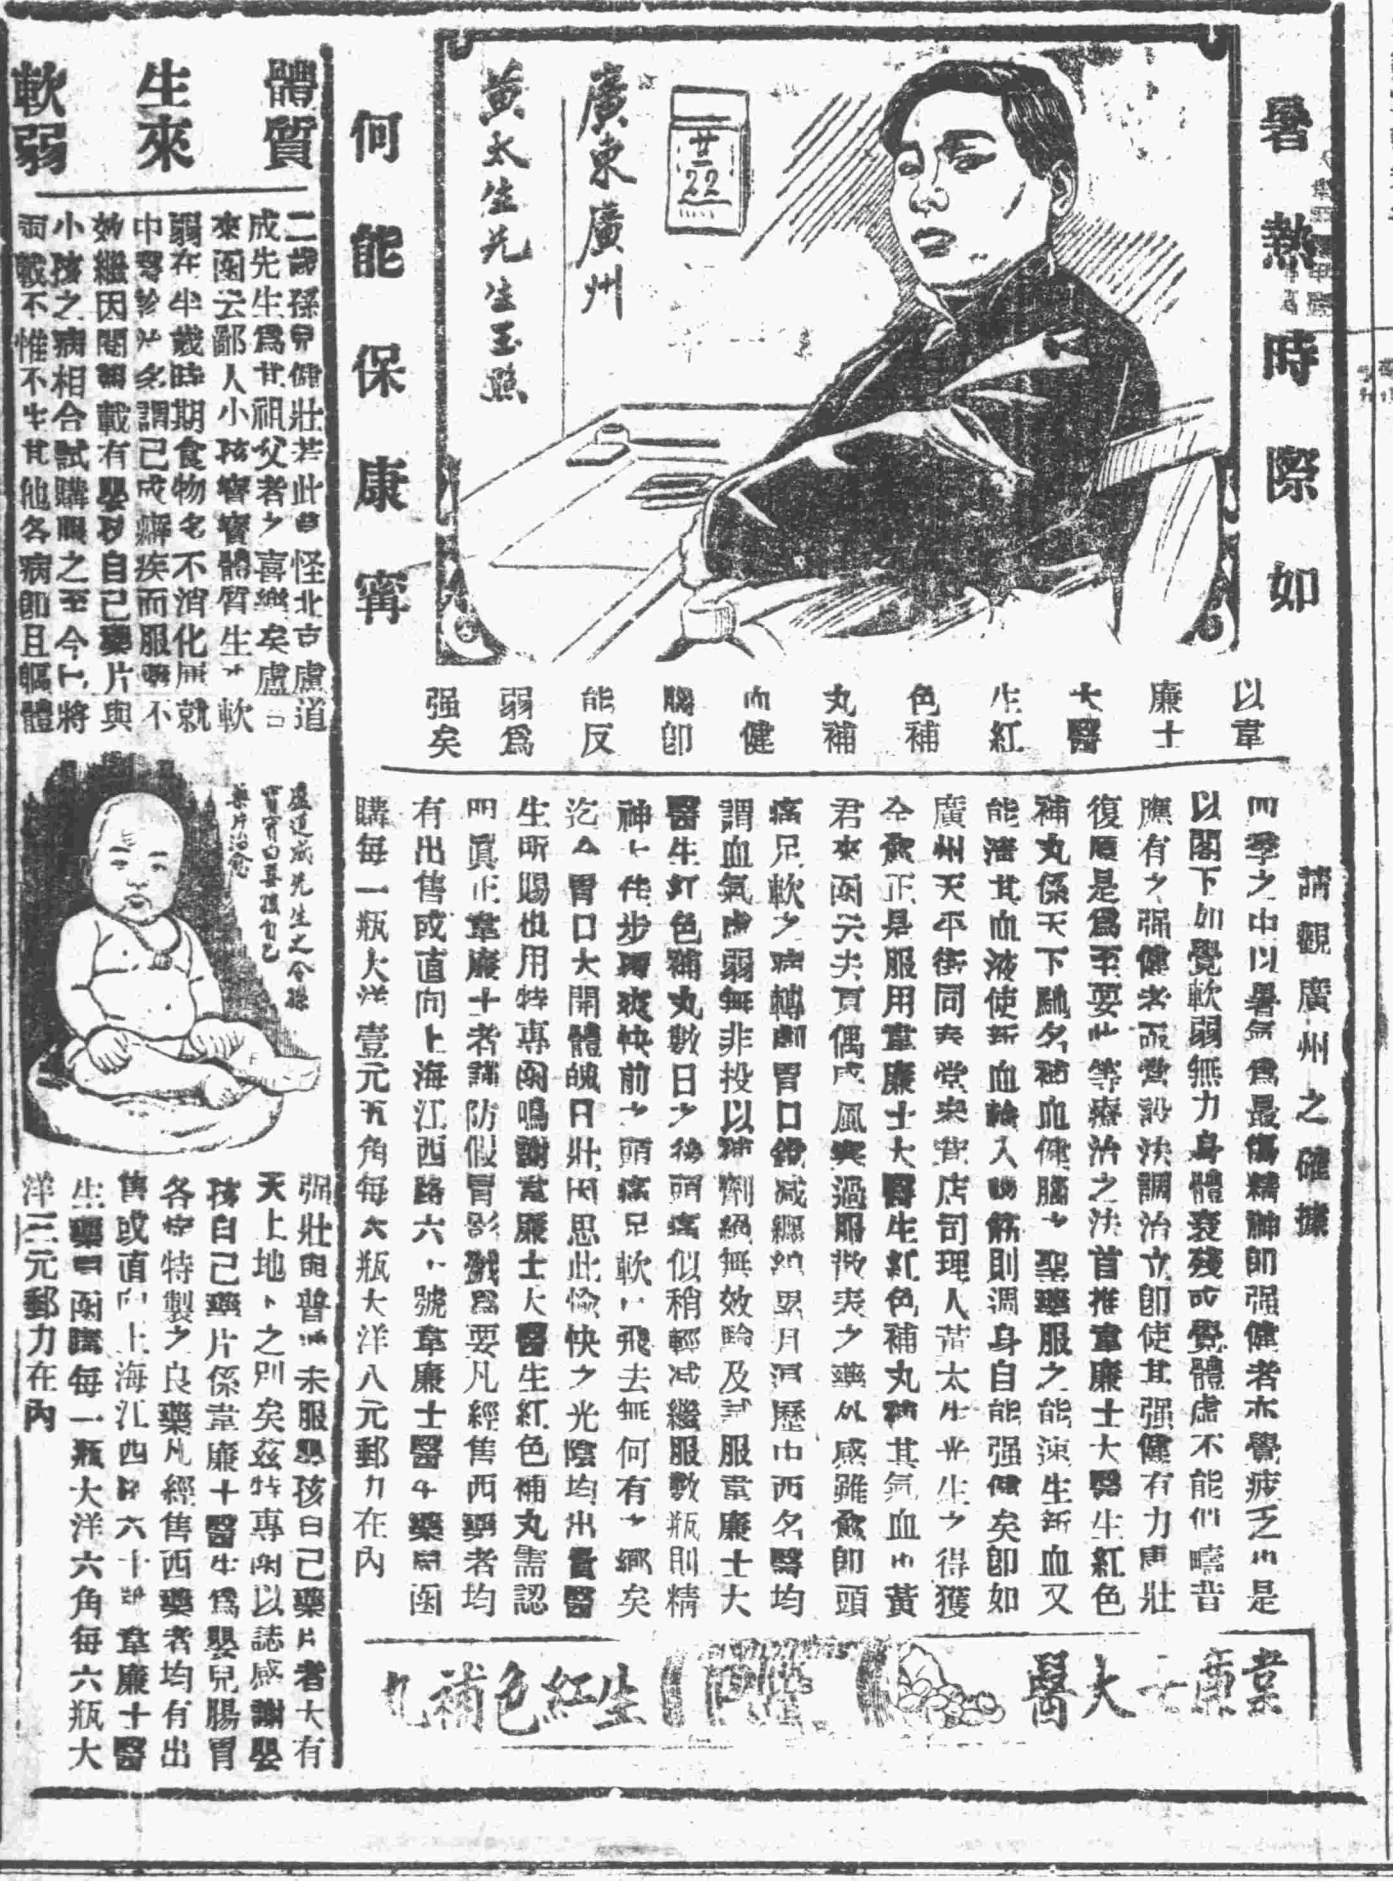 暑熱時際如
何能保康甯
廣東廣州
黃太生先生玉照
廿二
22
以韋
廉士
大醫
生紅
色補
丸補
血健
腦卽
能反
弱爲
强矣
請觀廣州之確據
四季之中以暑氣爲最傷精神卽强健者亦覺疲乏也是
以閣下如覺軟弱無力身體衰殘或覺體虛不能如疇昔
應有之强健者亟當設法調治立卽使其强健有力康壯
復原是爲至要此等療治之法首推韋廉士大醫生紅色
補丸係天下馳名補血健腦之聖藥服之能速生新血又
能清其血液使新血輸入腦筋則週身自能强健矣卽如
廣州天平街同泰堂柴賣店司理人黃太生先生之得獲
全愈正是服用韋廉士大醫生紅色補丸補其氣血也黃
君來函云去夏偶感風寒過服散表之藥外感雖愈卽頭
痛足軟之病轉劇胃口銳减纏綿累月洊歷中西名醫均
謂血氣虛弱無非投以補劑絕無效驗及試服韋廉士大
醫生紅色補丸數日之後頭痛似稍輕减繼服數瓶則精
神上佳步履爽快前之頭痛足軟已飛去無何有之鄉矣
迄今胃口大開體魄日壯因思此愉快之光陰均出貴醫
生所賜也用特專函鳴謝韋廉士大醫生紅色補丸需認
明眞正韋廉士者謹防假冒影戤爲要凡經售西藥者均
有出售或直向上海江西路六十號韋廉士醫生藥局函
購每一瓶大洋壹元五角每六瓶大洋八元郵力在內
韋廉士大醫生紅色補丸
體質
生來
軟弱
二歲孫兒健壯若此莫怪北京盧道
成先生爲其祖父者之喜樂矣盧君
來函云鄙人小孩寶寶體質生來軟
弱在半歲時期食物多不消化屢就
中醫診治多謂已成癖疾而服藥不
效繼因閱報載有嬰孩自己藥片與
小孩之病相合試購服之至今已將
兩載不惟不生其他各病卽且軀體
盧道成先生之令孫
寶寶曰喜孩自己
藥片治愈
强壯與普通未服嬰孩自己藥片者大有
天上地下之別矣茲特專函以誌感謝嬰
孩自己藥片係韋廉士醫生爲嬰兒腸胃
各症特製之良藥凡經售西藥者均有出
售或直向上海江西路六十號韋廉士醫
生藥局函購每一瓶大洋六角每六瓶大
洋三元郵力在內